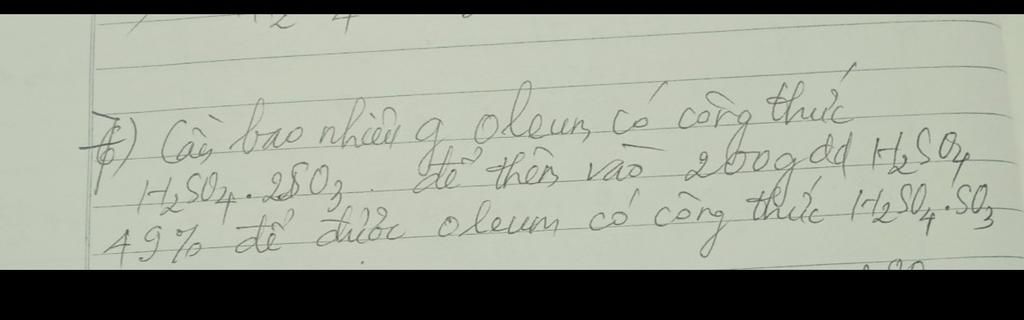 Cần bao nhiêu g oleum có công thức
H₂SO₄.2SO₃ để thêm vào 200g dd H₂SO₄
49% để được oleum có công thức H₂SO₄.SO₃